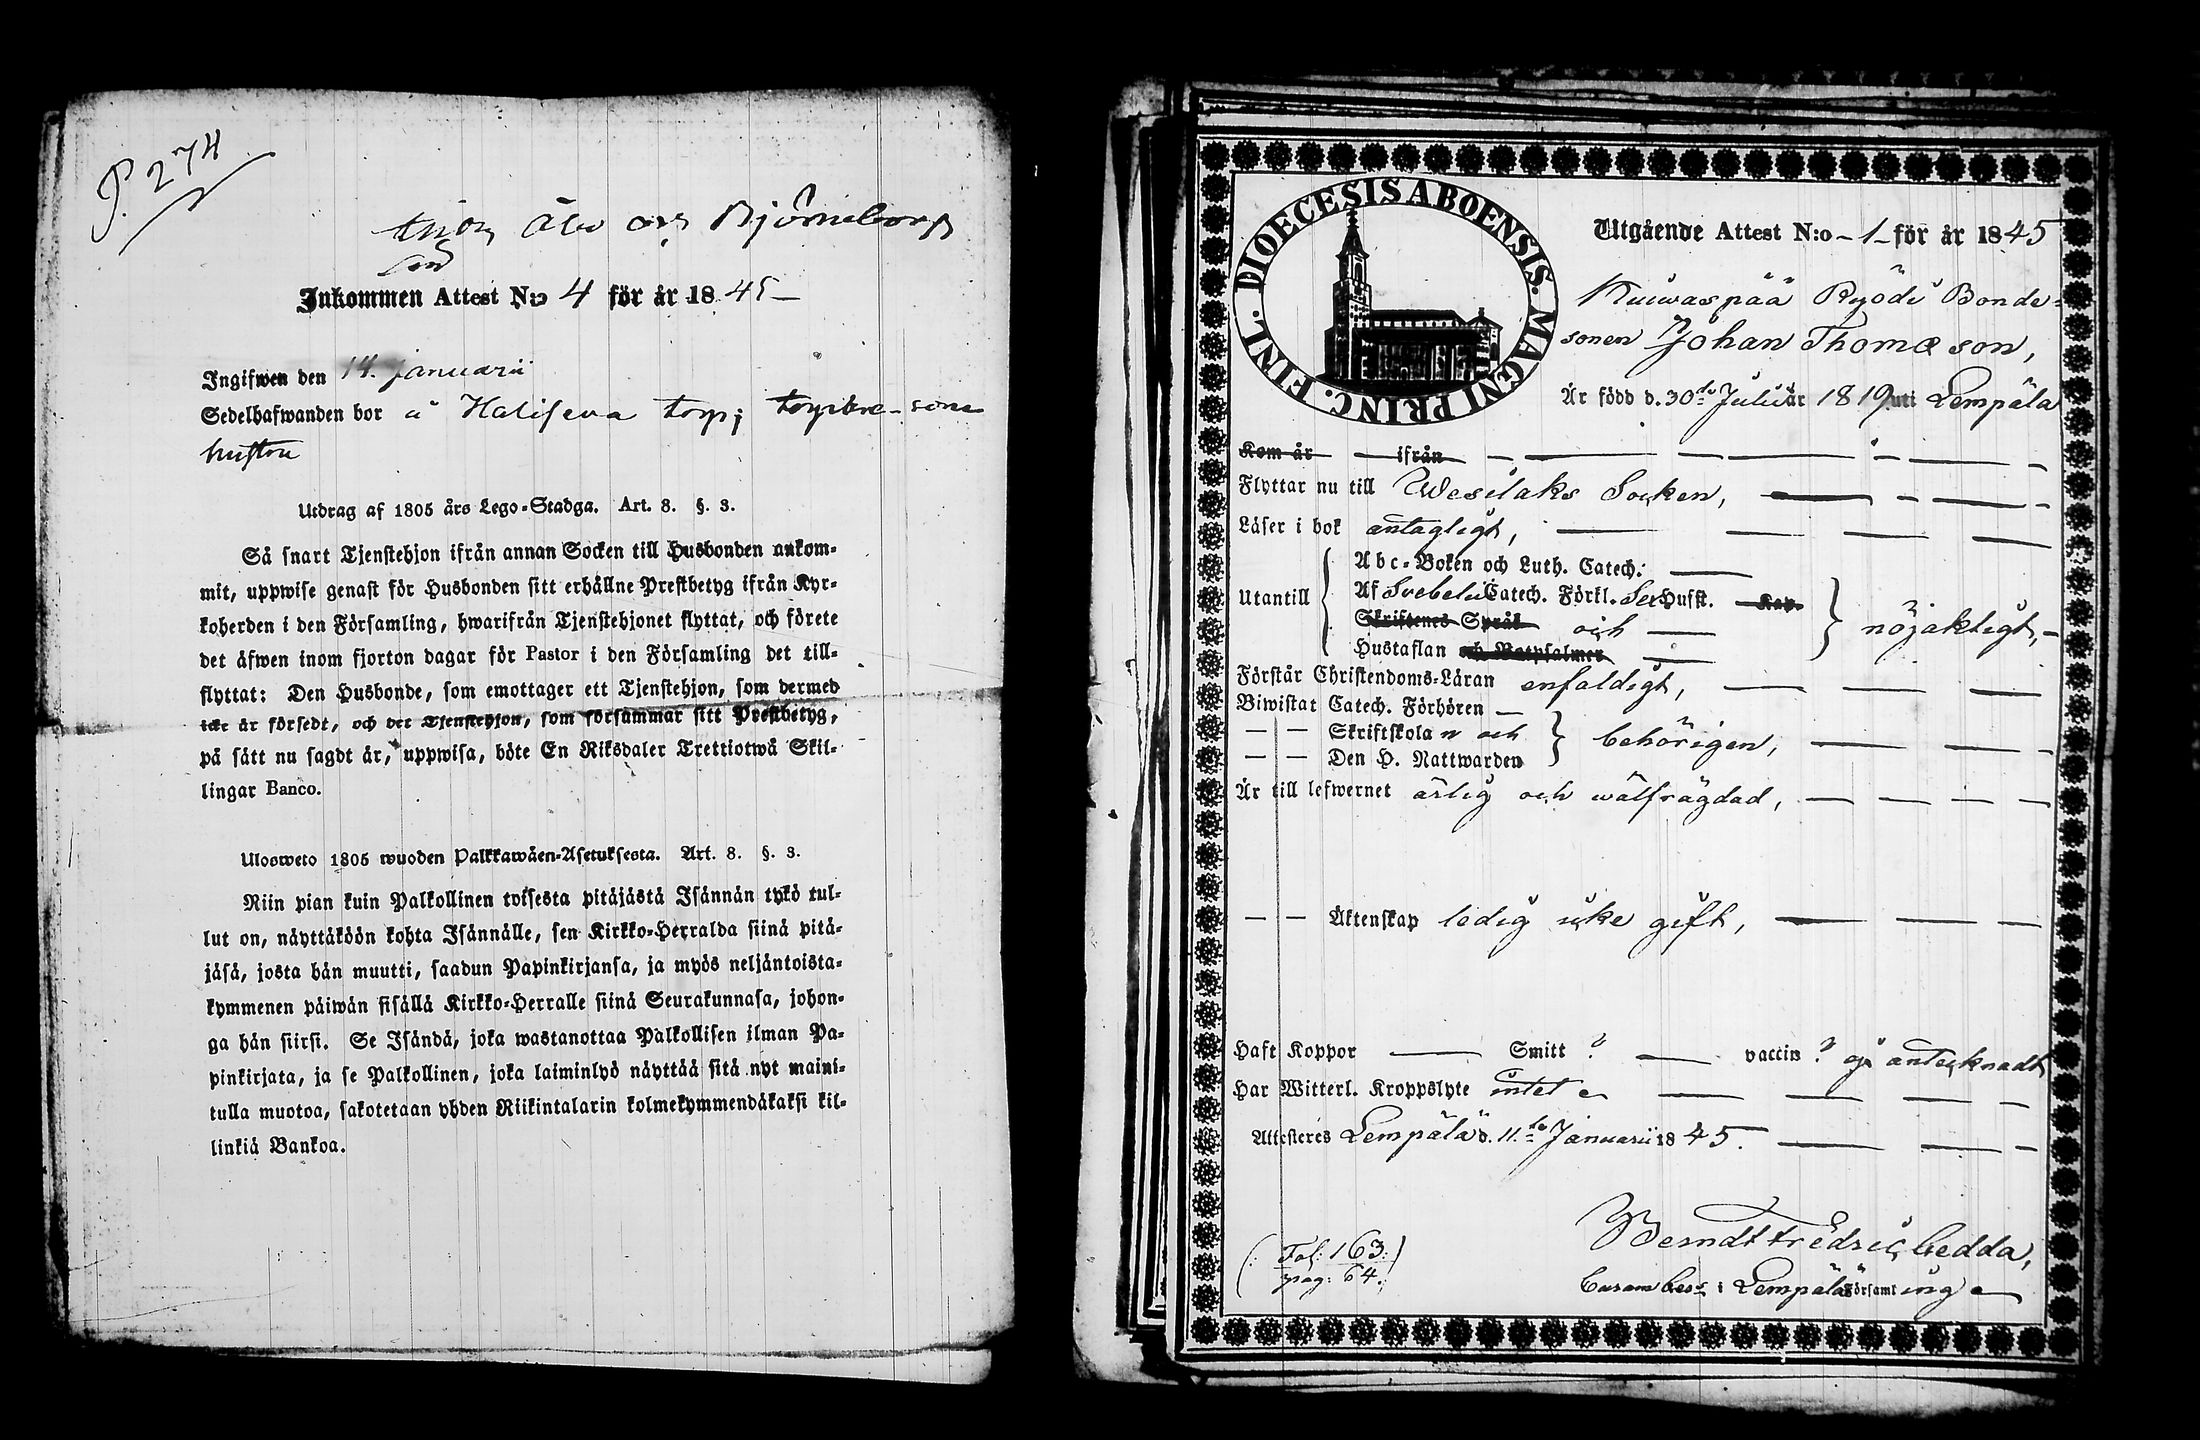 P. 274
Åbo och Björneborgs
Inkommen Attest N:o 4 för år 1845
Ingifwen den 14. Januarii
Sedelhafwanden bor å Halisewa torp;
hustru
Utdrag af 1805 års Lego-Stadga. Art. 8. §. 3.
Så snart Tjenstehjon ifrån annan Socken till Husbonden ankom-
mit, uppwise genast för Husbonden sitt erhållne Prestbetyg ifrån Kyr-
koherden i den Församling, hwarifrån Tjenstehjonet flyttat, och förete
det äfwen inom fjorton dagar för Pastor i den Församling det till-
flyttat: Den Husbonde, som emottager ett Tjenstehjon, som dermed
icke är försedt, och det Tjenstehjon, som försummar sitt Prestbetyg,
på sätt nu sagdt är, uppwisa, böte En Riksdaler Trettiotwå Skil-
lingar Banco.
Ulosweto 1805 wuoden Palkkawäen-Asetuksesta. Art. 8. §. 3.
Niin pian kuin Palkollinen toisesta pitäjästä Isännän tykö tul-
lut on, näyttäköön kohta Isännälle, sen Kirkko-Herralda siinä pitä-
jäsä, josta hän muutti, saadun Papinkirjansa, ja myös neljäntoista-
kymmenen päiwän sisällä Kirkko-Herralle siinä Seurakunnasa, johon-
ga hän siirsi. Se Isändä, joka wastanottaa Palkollisen ilman Pa-
pinkirjata, ja se Palkollinen, joka laiminlyö näyttää sitä nyt maini-
tulla muotoa, sakotetaan yhden Riikintalarin kolmekymmendäkaksi kil-
linkiä Bankoa.
DIOECESIS ABOENSIS. MAGNI PRINC. FINL.
Utgående Attest N:o - 1 - för år 1845
Kuiwaspää Ryödi Bonde-
sonen Johan Thomæson,
Är född d. 30de Julii år 1819 uti Lempäla
Kom år ifrån
Flyttar nu till Wesilaks Socken,
Läser i bok antagligt,
Utantill
Abc-Boken och Luth. Catech.
Af Svebelii Catech. Förkl. Sex Hufst. Kap.
Skriftenes Språk och
Hustaflan och Botpsalmer
nöjaktigt,
Förstår Christendoms-Läran enfaldigt,
Biwistat Catech. Förhören
Skriftskolan och
Den H. Nattwarden
behörigen,
Är till lefwernet ärlig och wälfrägdad,
Äktenskap ledig icke gift,
Haft Koppor Smitt ? vaccin ? ej antecknadt
Har Witterl. Kroppslyte intet
Attesteres Lempälä d. 11te Januarii 1845.
(: Fol: 163:)
pag: 64.
Berndt Fredric Gedda,
i Lempälä Församling